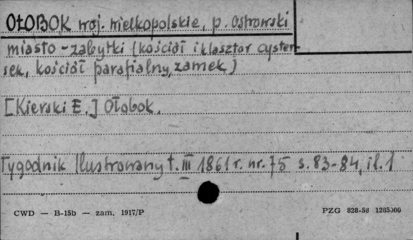 OŁOBOK woj. wielkopolskie, p. ostrowski
miasto - zabytki (kościół i klasztor cyster-
sek, kościół parafialny, zamek)
[Kierski E.] Ołobok.
Tygodnik Ilustrowany t. III 1861 r. nr. 75 s. 83-84, il. 1
CWD — B-15b — zam. 1917/P
PZG 828-56 1265000